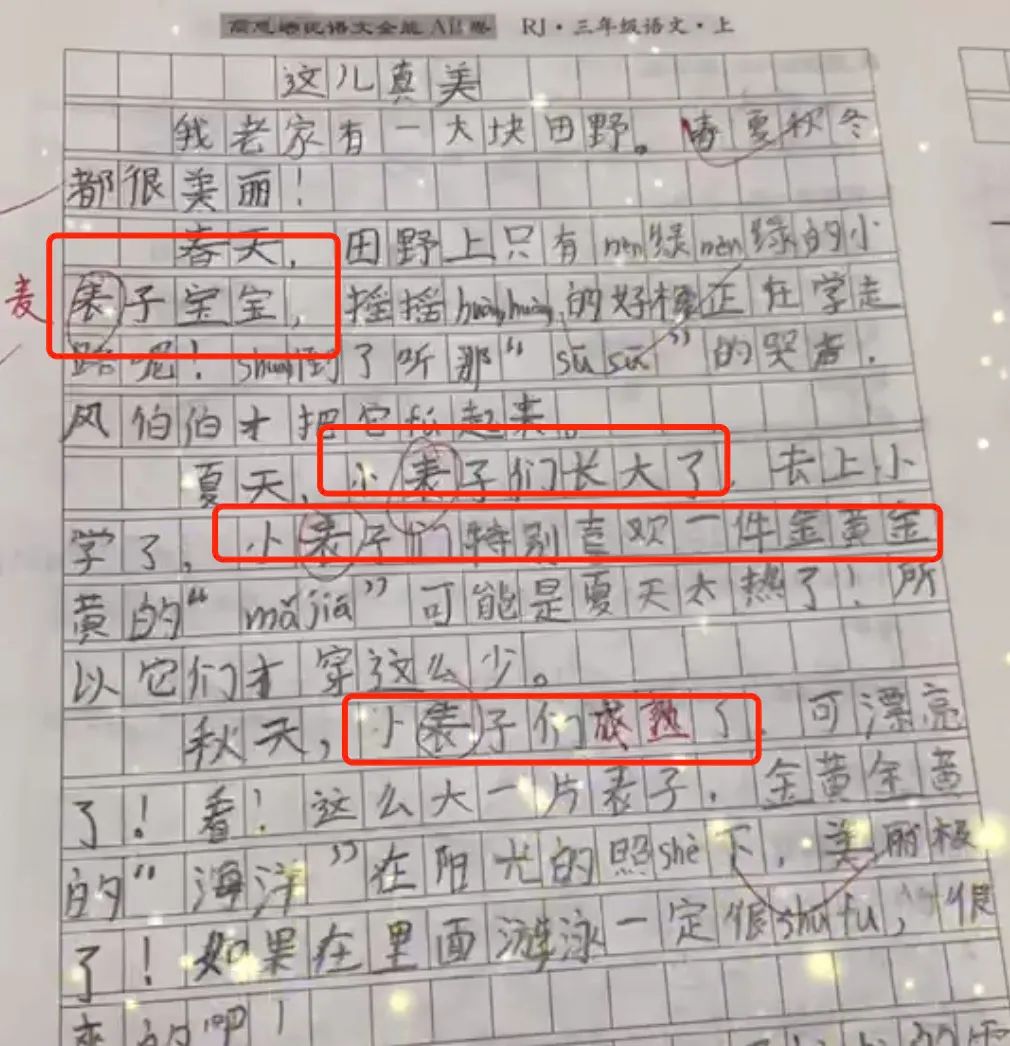 RJ·三年级语文·上
这儿真美
我老家有一大块田野。春夏秋冬
都很美丽!
春天,田野上只有nèn绿nèn绿的小
麦
表子宝宝,摇摇huànghuàng的好像正在学走
路呢!shuāi倒了听那“sū sū”的哭声,
风伯伯才把它扶起来。
夏天,小表子们长大了,去上小
学了,小表子们特别喜欢一件金黄金
黄的“mǎjiǎ”可能是夏天太热了!所
以它们才穿这么少。
秋天,小表子们成熟了,可漂亮
了!看!这么大一片表子,金黄金黄
的“海洋”在阳光的照shè下,美丽极
了!如果在里面游泳一定很shū fu,很
的吧!